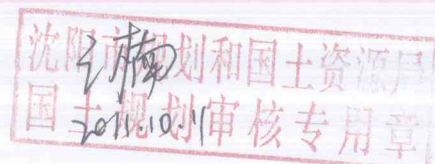 沈阳市规划和国土资源局
国土规划审核专用章
2011.10.11